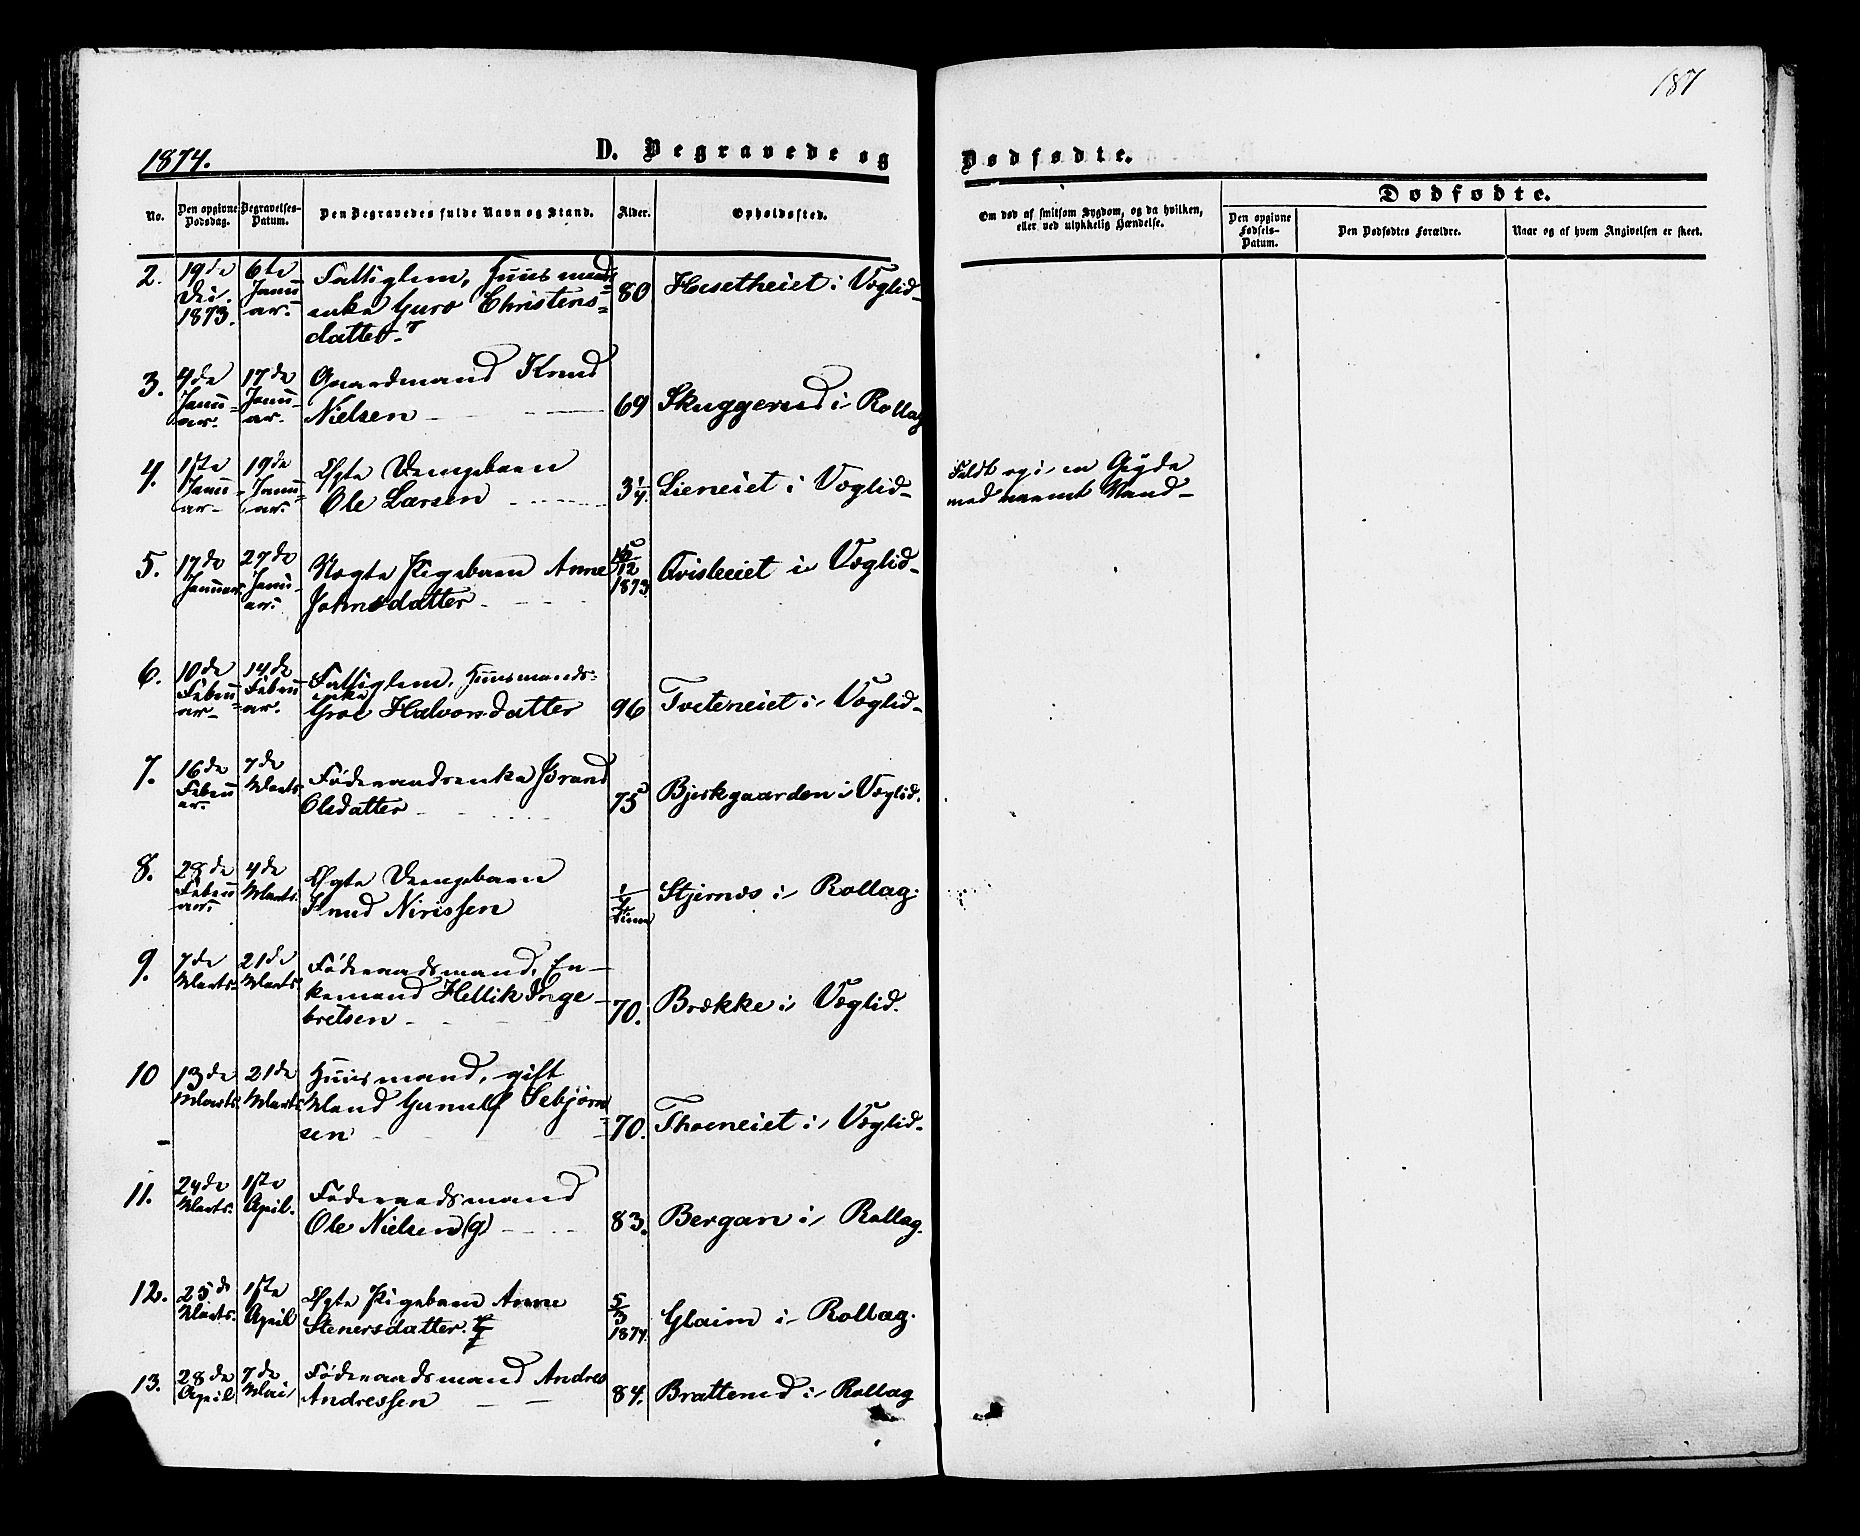 187
1874.
D. Begravede og Dødfødte.
Dødfødte.
No.
Den opgivne Dødsdag.
Begravelses-Datum.
Den Begravedes fulde Navn og Stand.
Alder.
Opholdssted.
Om død af smitsom Sygdom, og da hvilken,
eller ved ulykkelig Hændelse.
Den opgivne Fødsels-Datum.
Den Dødfødtes Forældre.
Naar og af hvem Angivelsen er skeet.
2. 19de 6te Fattiglem, Huusmands=
1873. Januar. enke Guro Christens= 80 i Væglid
datter.
3. 4de 17de Gaardmand Knud
Januar. Januar. Nielsen 69 Skuggerud i Rollag
4. 1ste 19de Ægte Drengebarn
Januar Januar. Ole Larsen 3 1/4. Lieneiet i Væglid
Faldt i en Gryde
med varmt Vand
5. 17de 27de Uægte Pigebarn Anne /12 i Væglid
Januar Januar. Johnsdatter 1873
6. 10de 14de Fattiglem, Huusmands=
Februar Februar. enke Groe Halvorsdatter 96 Tveteneiet i Væglid
7. 16de 7de Føderaadsenke Jørand
Februar. Marts. Olsdatter 75 Bjerkgaarden i Væglid.
8. 28de 4de Ægte Drengebarn
Februar. Marts. Knud Nirissen 1/4 Stjernes i Rollag.
9. 7de 21de Føderaadsmand, En-
Marts. Marts. kemand Hellik Inge- 70. Brække i Væglid.
bretsen
10 13de 21de Huusmand, gift
Marts. Marts. Mand Gunulf Sebjørn
sen 70. Thorneiet i Væglid
11. 24de 1ste Føderaadsmand
Marts. April. Ole Nielsen (g) 83. Bergan i Rollag.
12. 25de 1ste Ægte Pigebarn Anne 5/3
Marts. April Stenersdatter. 1874. Glaim i Rollag.
13. 28de 7de Føderaadsmand Andres
April Mai Andressen 84. Bratterud i Rollag